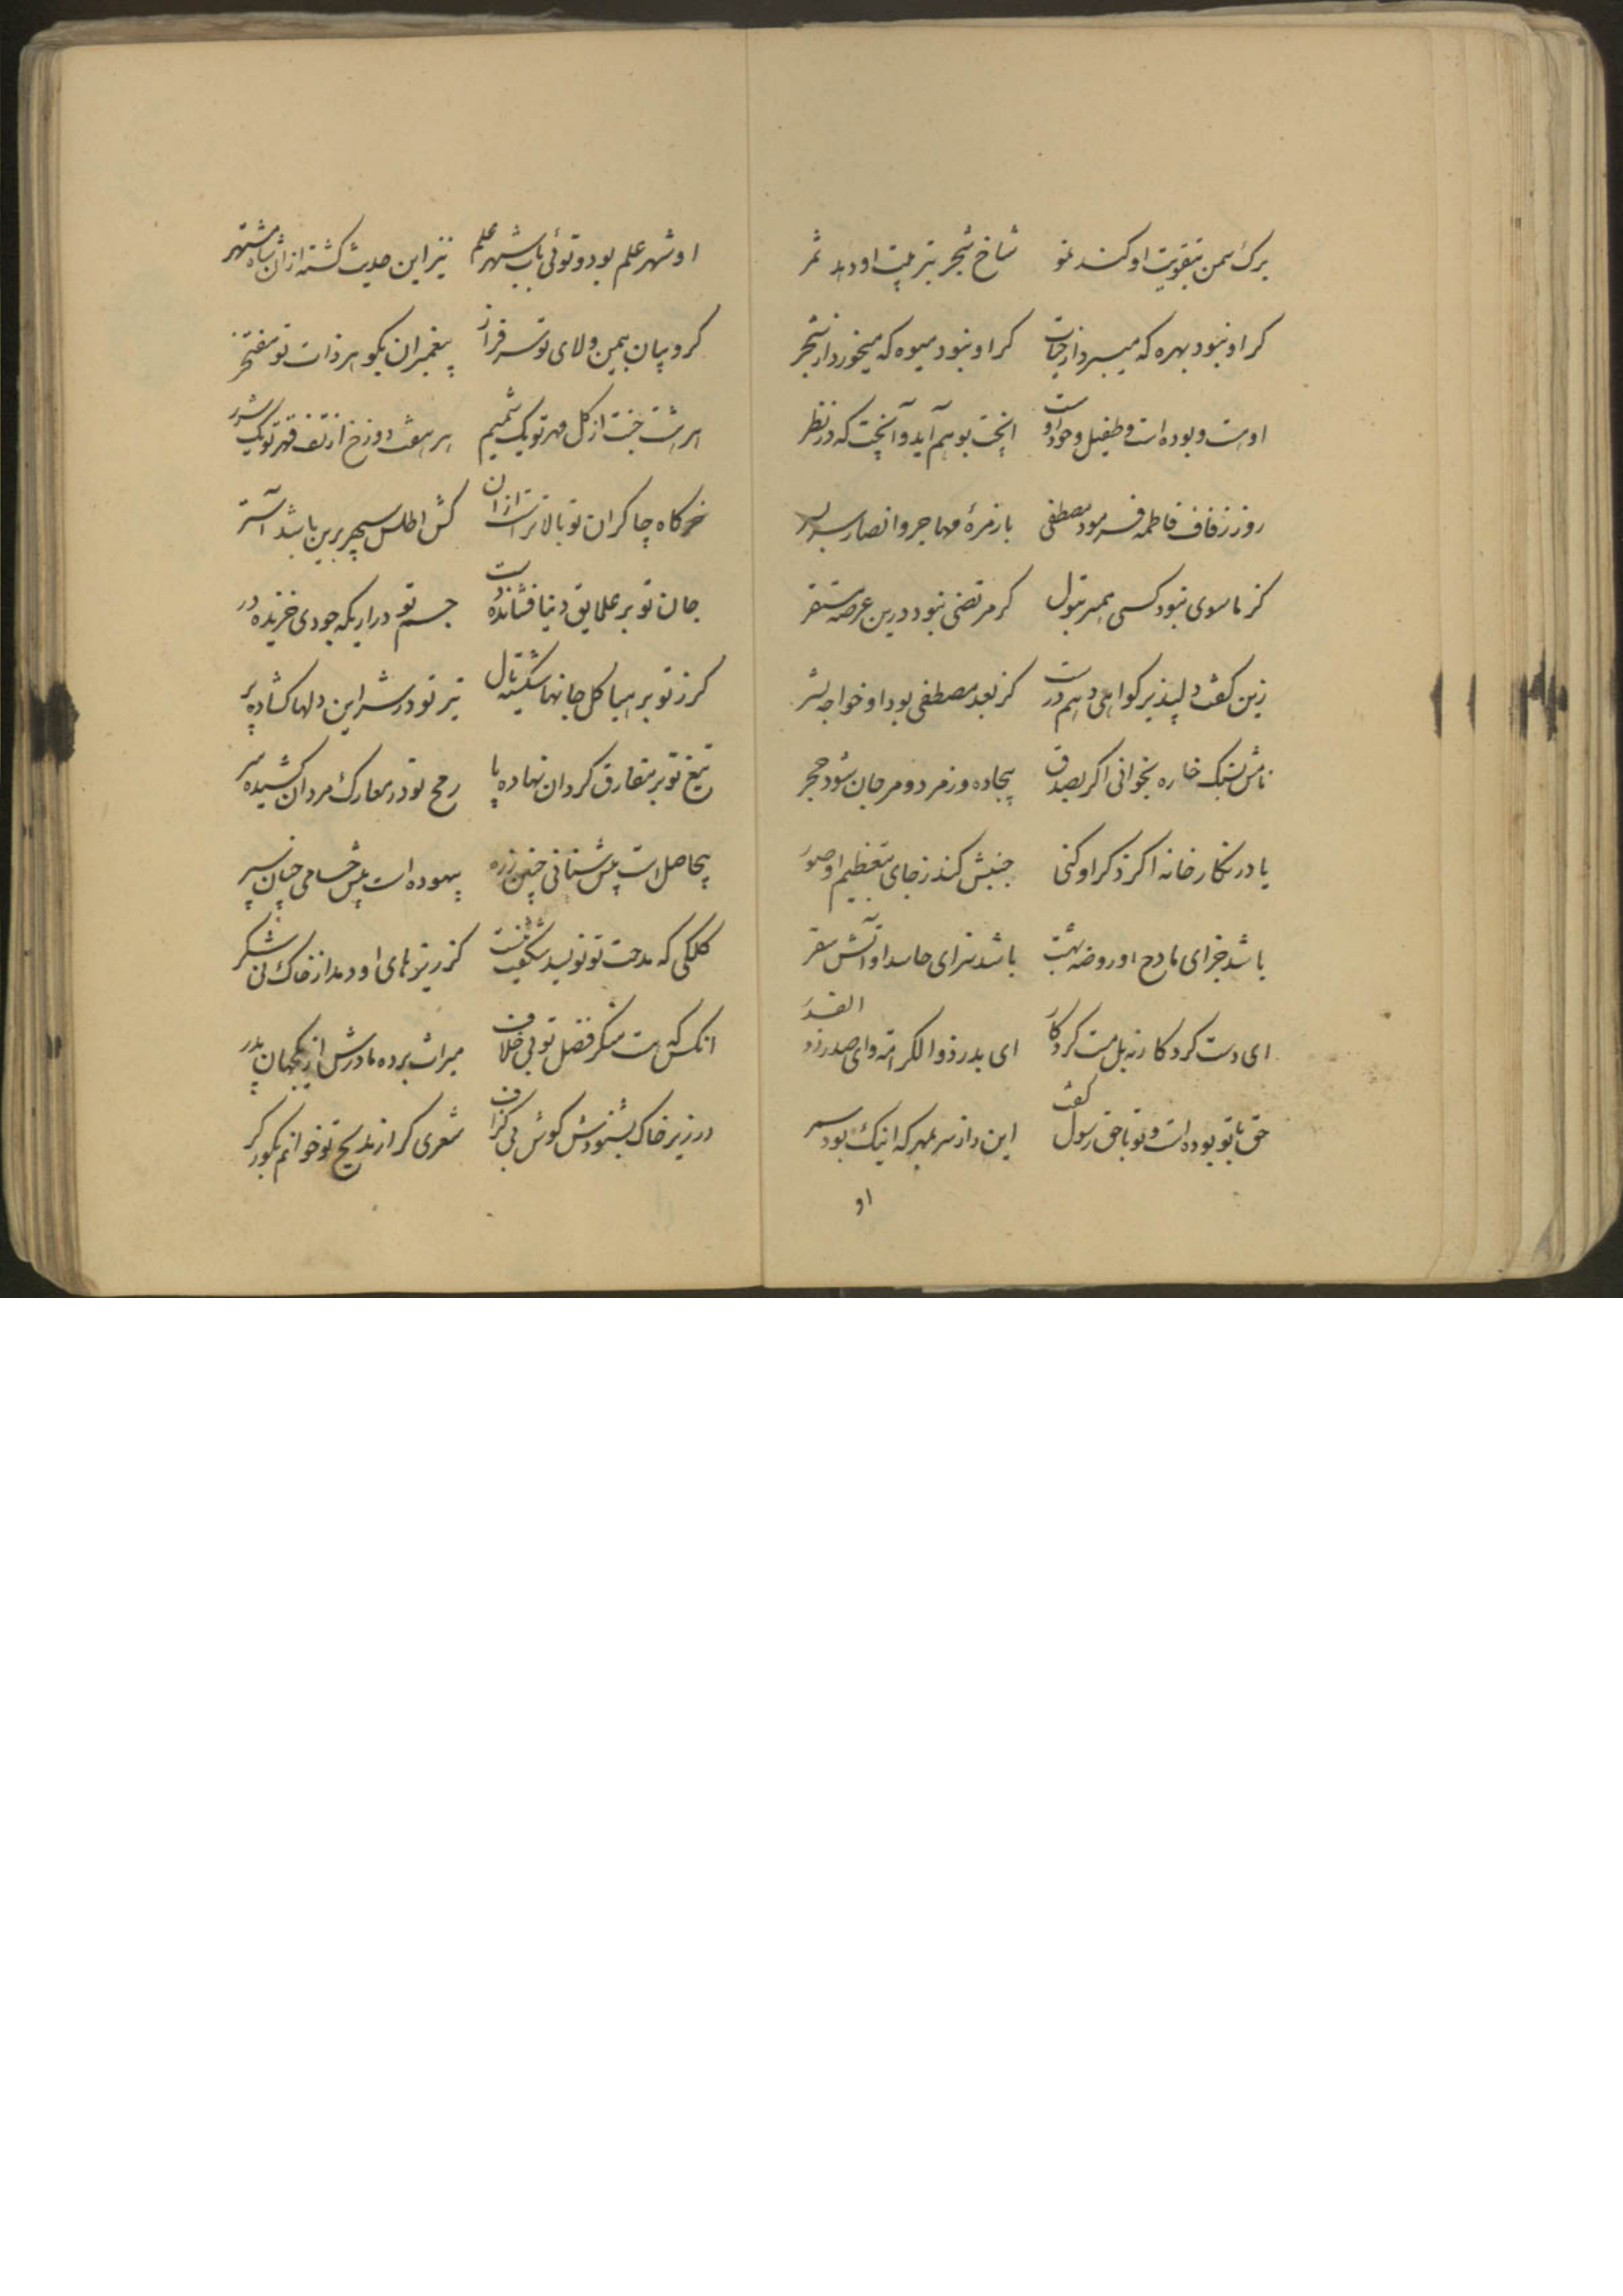 برک سمن بتقویت او کند نمو شاخ شجر بتربیت او دهد ثمر
کر او نبود بهره که میبرد از جنان کر او نبود میوه که میخورد از شجر
اوست و بوده است و طفیل وجود اوست انچت بوهم آید و آنچت که در نظر
روز زفاف فاطمه فرمود مصطفی با زمرهٔ مهاجر و انصار سربسر
کز ماسوی نبود کسی همسر بتول کر مرتضی نبود درین عرصه مستقر
زین کفت دلپذیر کواهی دهم درست کز بعد مصطفی بود او خواجه بشر
نامش بسنک خاره بخوانی اکر بصدق بیجاده و زمرد و مرجان شود حجر
یا در نکارخانه اکر ذکر او کنی جنبش کند ز جای بتعظیم او صور
باشد جزای مادح او روضه بهشت باشد سزای حاسد او آتش سقر
ای دست کردکار نه بل مست کردکار ای بدر ذوالکرامة و ای صدر ذو القدر
حق با تو بوده است و تو با حق رسول کفت این راز سر بمهر که اینک بود سمر
او
او شهر علم بود و توئی باب شهر علم نیز این حدیث کشته از آن شاه مشتهر
کروبیان بیمن ولای تو سرفراز پیغمبران بکوهر ذات تو مفتخر
هر هشت جنت از کل مهر تو یک شمیم هر هفت دوزخ از تف قهر تو یک شرر
خرکاه چاکران تو بالاتر است از آن کش اطلس سپهر برین باشد آستر
جان تو بر علایق دنیا فشانده دست جسم تو در اریکه جودی خزیده در
کرز تو بر هیاکل جانها شکسته یال تیر تو در شراین دلها کشاده پر
تیغ تو بر مفارق کردان نهاده پا رمح تو در معارک مردان کشیده سر
بیحاصل است پیش سنانی چنین زره بیهوده است پیش حسامی چنان سپر
کلکی که مدحت تو نویسد شکفت نیست کز ریزهای او دمد از خاک نی شکر
انکس که هست منکر فضل تو بی خلاف میراث برده مادرش از یکجهان پدر
در زیر خاک بشنودش کوش بی کزاف شعری کر از مدیح تو خوانم بکور کر